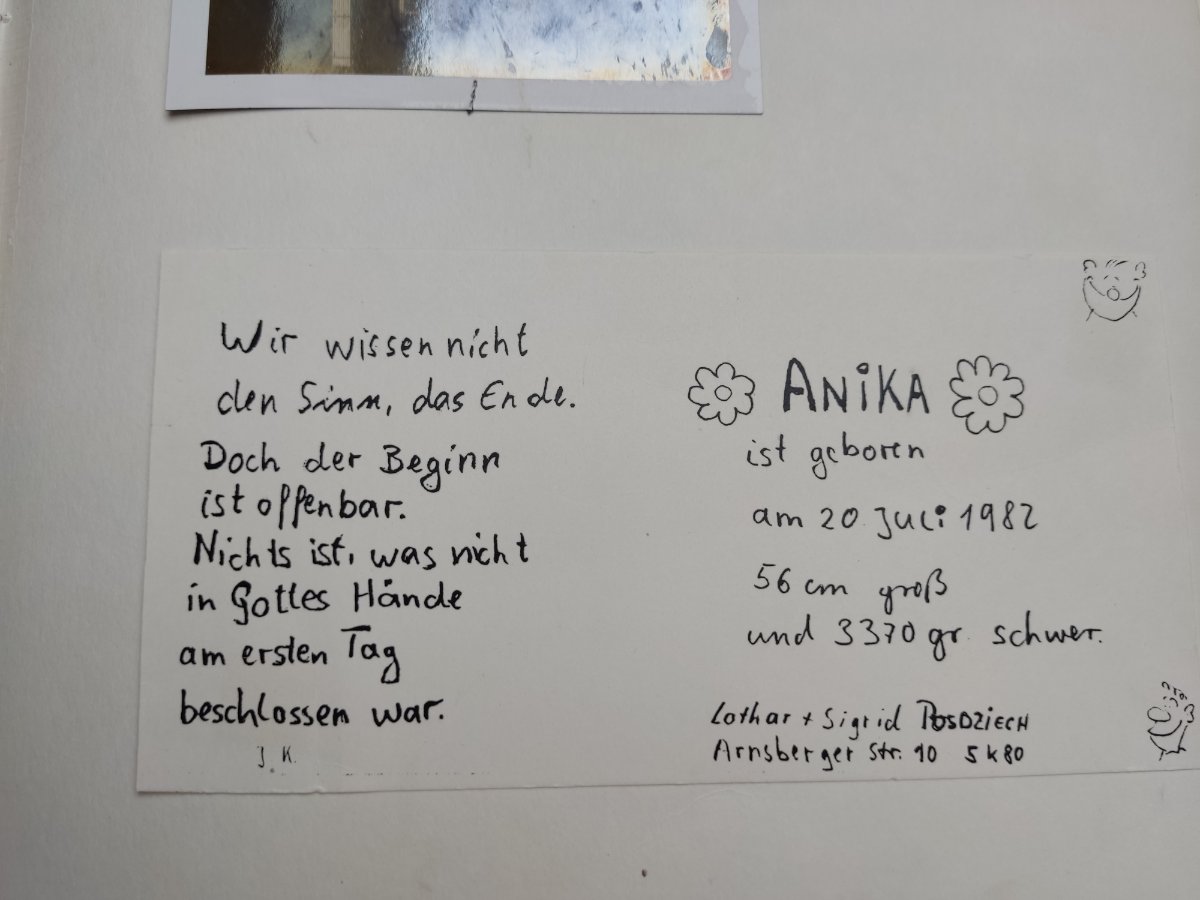 Wir wissen nicht
den Sinn, das Ende.
Doch der Beginn
ist offenbar.
Nichts ist, was nicht
in Gottes Hände
am ersten Tag
beschlossen war.
J. K.
ANiKA
ist geboren
am 20. Juli 1982
56 cm groß
und 3370 gr. schwer.
Lothar + Sigrid POSDZIECH
Arnsberger Str. 10 5 K 80